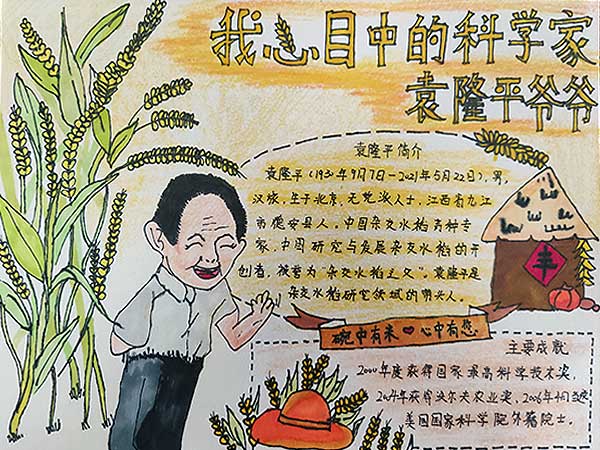 我心目中的科学家
袁隆平爷爷
袁隆平简介
袁隆平(1930年9月7日—2021年5月22日),男,
汉族,生于北京,无党派人士,江西省九江
市德安县人,中国杂交水稻育种专
家,中国研究与发展杂交水稻的开
创者,被誉为“杂交水稻之父”。袁隆平是
杂交水稻研究领域的带头人。
丰
碗中有米❤心中有您
主要成就
2000年度获得国家最高科学技术奖,
2004年获得沃尔夫农业奖,2006年4月当选
美国国家科学院外籍院士。